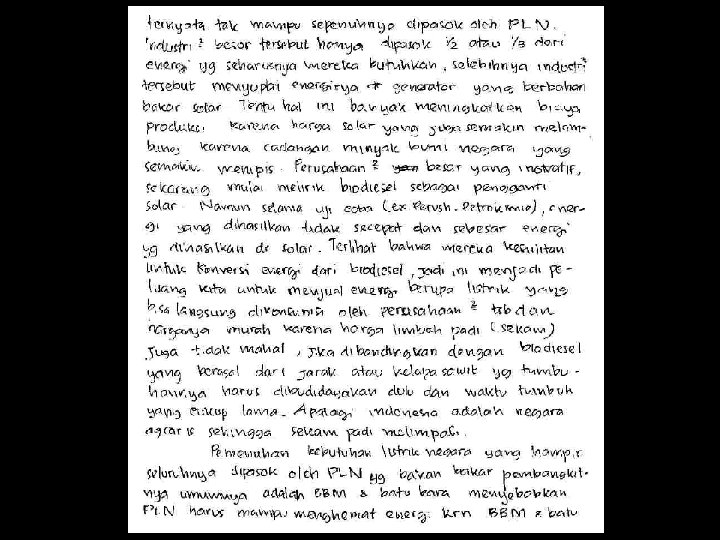 ternyata tak mampu sepenuhnya dipasok oleh PLN.
Industri² besar tersebut hanya dipasok 1/2 atau 1/3 dari
energi yg seharusnya mereka butuhkan, selebihnya industri²
tersebut menyuplai energinya dr generator yang berbahan
bakar solar. Tentu hal ini banyak meningkatkan biaya
produksi karena harga solar yang juga semakin melam-
bung karena cadangan minyak bumi negara yang
semakin menipis. Perusahaan² besar yang inovatif,
sekarang mulai melirik biodiesel sebagai pengganti
solar. Namun selama uji coba (ex. Perush. Petrokimia), ener-
gi yang dihasilkan tidak secepat dan sebesar energi
yg dihasilkan dr solar. Terlihat bahwa mereka kesulitan
untuk konversi energi dari biodiesel, jadi ini menjadi pe-
luang kita untuk menjual energi berupa listrik yang
bisa langsung dikonsumsi oleh perusahaan² tsb dan
harganya murah karena harga limbah padi (sekam)
juga tidak mahal, jika dibandingkan dengan biodiesel
yang berasal dari jarak atau kelapa sawit yg tumbu-
hannya harus dibudidayakan dulu dan waktu tumbuh
yang cukup lama. Apalagi indonesia adalah negara
agraris sehingga sekam padi melimpah.
Pemenuhan kebutuhan listrik negara yang hampir
seluruhnya dipasok oleh PLN yg bahan bakar pembangkit-
nya umumnya adalah BBM & batu bara menyebabkan
PLN harus mampu menghemat energi krn BBM & batu